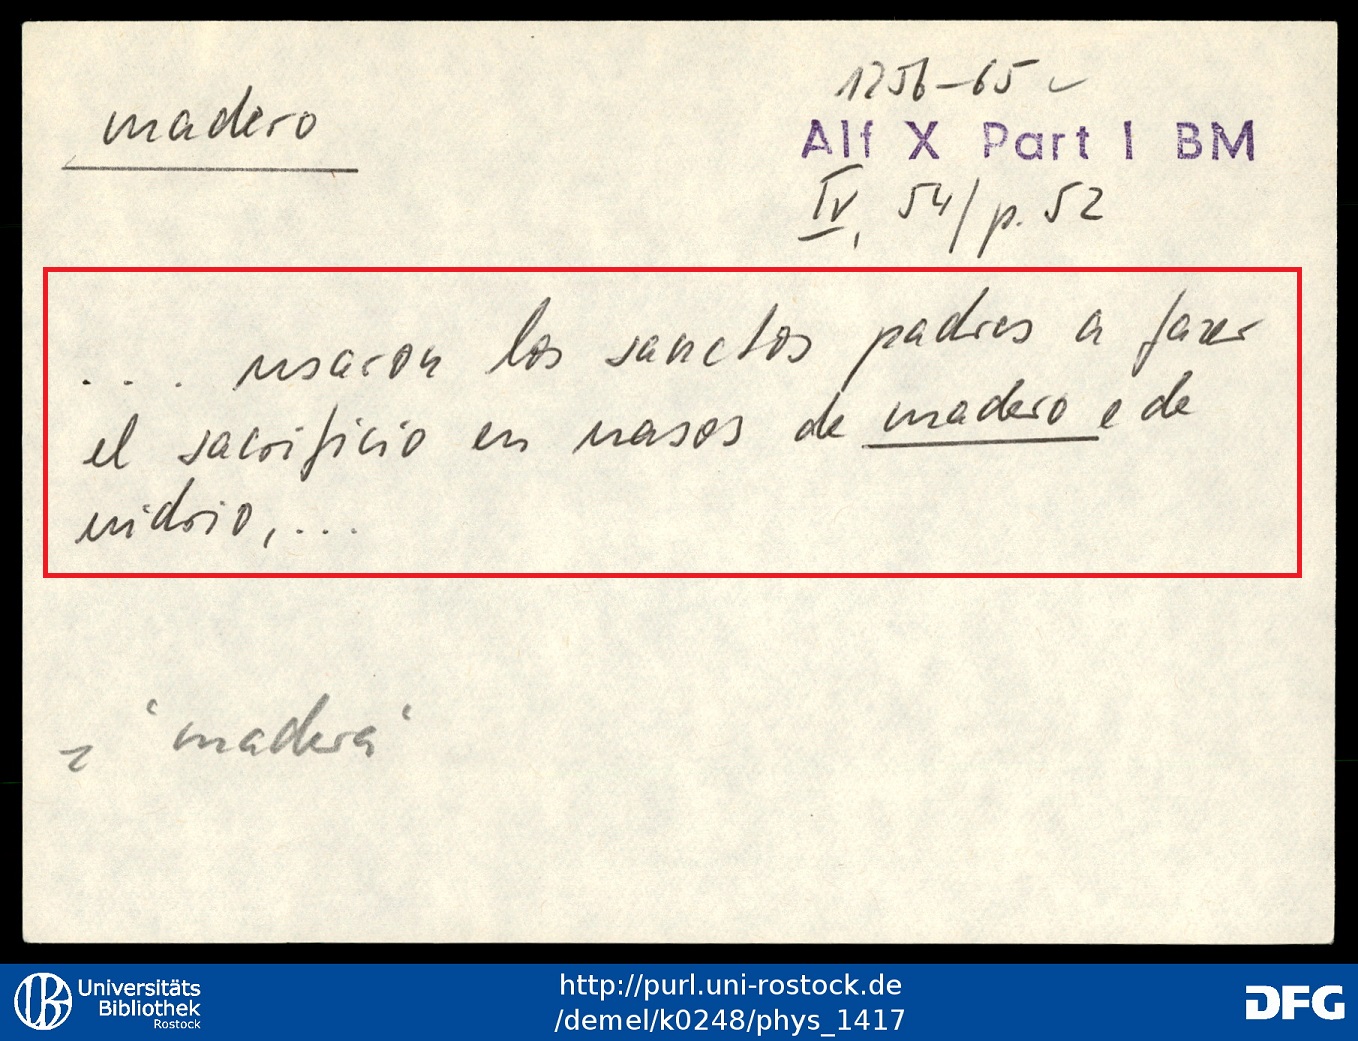 madero
1256-65
Alf X Part I BM
IV, 54/p. 52
... usaron los sanctos padres a fazer
el sacrificio en uasos de madero e de
uidrio, ...
"madera"
Universitäts
Bibliothek
Rostock
http://purl.uni-rostock.de
/demel/k0248/phys_1417
DFG